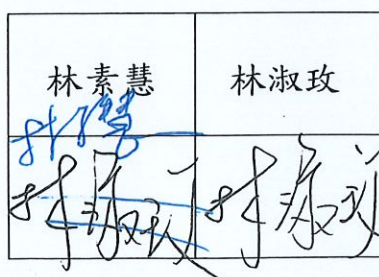 林素慧 林淑玫
林素慧
林淑玫 林淑玫